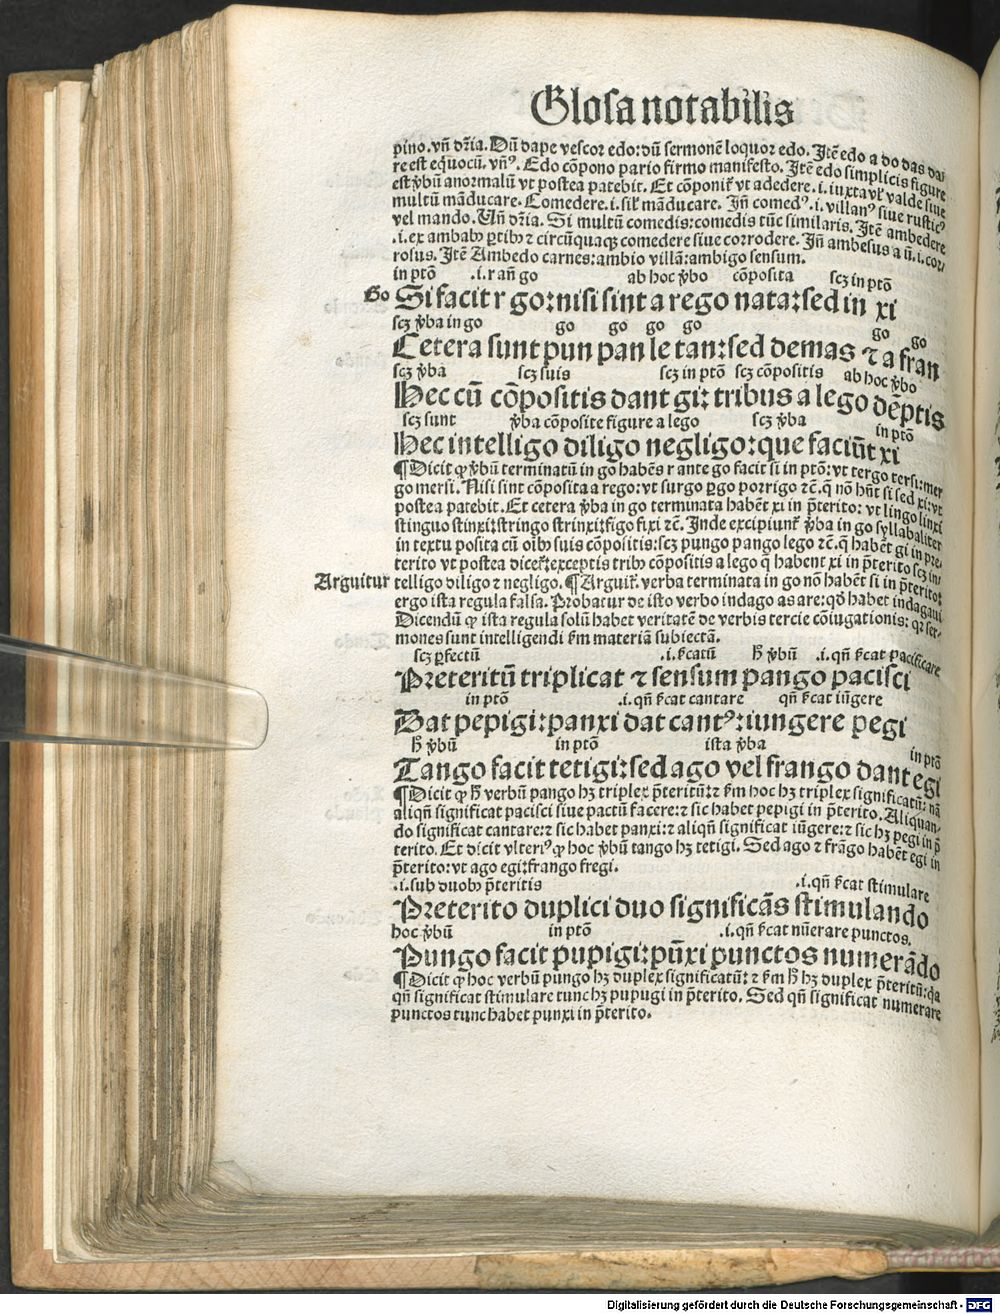 Glosa notabilis
pino. vñ dr̃ia. Dũ dape vescor edo: dũ sermonẽ loquor edo. Itẽ edo a do das dai
re est equocũ. vñꝰ. Edo cõpono pario firmo manifesto. Itẽ edo simplicis figure
est ṽbũ anormalũ vt postea patebit. Et cõponit᷑ vt adedere .i. iuxta vł valde siue
multũ mãducare. Comedere .i. sił mãducare. Iñ comedꝰ .i. villanꝰ siue rusticꝰ
vel mando. Vñ dr̃ia. Si multũ comedis: comedis tũc similaris. Itẽ ambedere
.i. ex ambabꝰ ꝑtibꝰ ⁊ circũquaqꝫ comedere siue corrodere. Iñ ambesus a ũ .i. cor/
rosus. Itẽ Ambedo carnes: ambio villã: ambigo sensum.
in ptõ .i. r añ go ab hoc ṽbo cõposita scꝫ in ptõ
Go Si facit r go: nisi sint a rego nata: sed in xi
scꝫ ṽba in go go go go go go go
Cetera sunt pun pan le tan: sed demas ⁊ a fran
scꝫ ṽba scꝫ suis scꝫ in ptõ scꝫ cõpositis ab hoc ṽbo
Hec cũ cõpositis dant gi: tribus a lego dẽptis
scꝫ sunt ṽba cõposite figure a lego scꝫ ṽba in ptõ
Hec intelligo diligo negligo: que faciũt xi
¶ Dicit ꝙ ṽbũ terminatũ in go habẽs r ante go facit si in ptõ: vt tergo tersi: mer
go mersi. Nisi sint cõposita a rego: vt surgo ꝑgo porrigo ⁊c̃. q̃ nõ hñt si sed xi: vt
postea patebit. Et cetera ṽba in go terminata habẽt xi in p̃terito: vt lingo linxi
stinguo stinxi: stringo strinxi: figo fixi ⁊c̃. Inde excipiunt᷑ ṽba in go syllabaliter
in textu posita cũ oĩbꝰ suis cõpositis: scꝫ pungo pango lego ⁊c̃. q̃ habẽt gi in pre/
terito vt postea dicet᷑: exceptis tribꝰ cõpositis a lego q̃ habent xi in p̃terito scꝫ in/
Arguitur telligo diligo ⁊ negligo. ¶ Arguit᷑. verba terminata in go nõ habẽt si in p̃terito:
ergo ista regula falsa. Probatur de isto verbo indago as are: qđ habet indagaui
Dicendũ ꝙ ista regula solũ habet veritatẽ de verbis tercie cõiugationis: qꝛ ser/
mones sunt intelligendi ẜm materiã subiectã.
scꝫ ꝑfectũ .i. ẜcatũ ħ ṽbũ .i. qñ ẜcat pacificare
Preteritũ triplicat ⁊ sensum pango pacisci
in ptõ .i. qñ ẜcat cantare qñ ẜcat iũgere
Dat pepigi: panxi dat cantꝰ: iungere pegi
ħ ṽbũ in ptõ ista ṽba in ptõ
Tango facit tetigi: sed ago vel frango dant egi
¶ Dicit ꝙ ħ verbũ pango hꝫ triplex p̃teritũ: ⁊ ẜm hoc hꝫ triplex significatũ: nã
aliqñ significat pacisci siue pactũ facere: ⁊ sic habet pepigi in p̃terito. Aliquan/
do significat cantare: ⁊ sic habet panxi: ⁊ aliqñ significat iũgere: ⁊ sic hꝫ pegi in p̃
terito. Et dicit vlteriꝰ ꝙ hoc ṽbũ tango hꝫ tetigi. Sed ago ⁊ frãgo habẽt egi in
p̃terito: vt ago egi: frango fregi.
.i. sub duobꝰ p̃teritis .i. qñ ẜcat stimulare
Preterito duplici duo significãs stimulando
hoc ṽbũ in ptõ .i. qñ ẜcat nũerare punctos.
Pungo facit pupigi: pũxi punctos numerãdo
¶ Dicit ꝙ hoc verbũ pungo hꝫ duplex significatũ: ⁊ ẜm ħ hꝫ duplex p̃teritũ: qa
qñ significat stimulare tunc hꝫ pupugi in p̃terito. Sed qñ significat numerare
punctos tunc habet punxi in p̃terito.
Digitalisierung gefördert durch die Deutsche Forschungsgemeinschaft - DFG